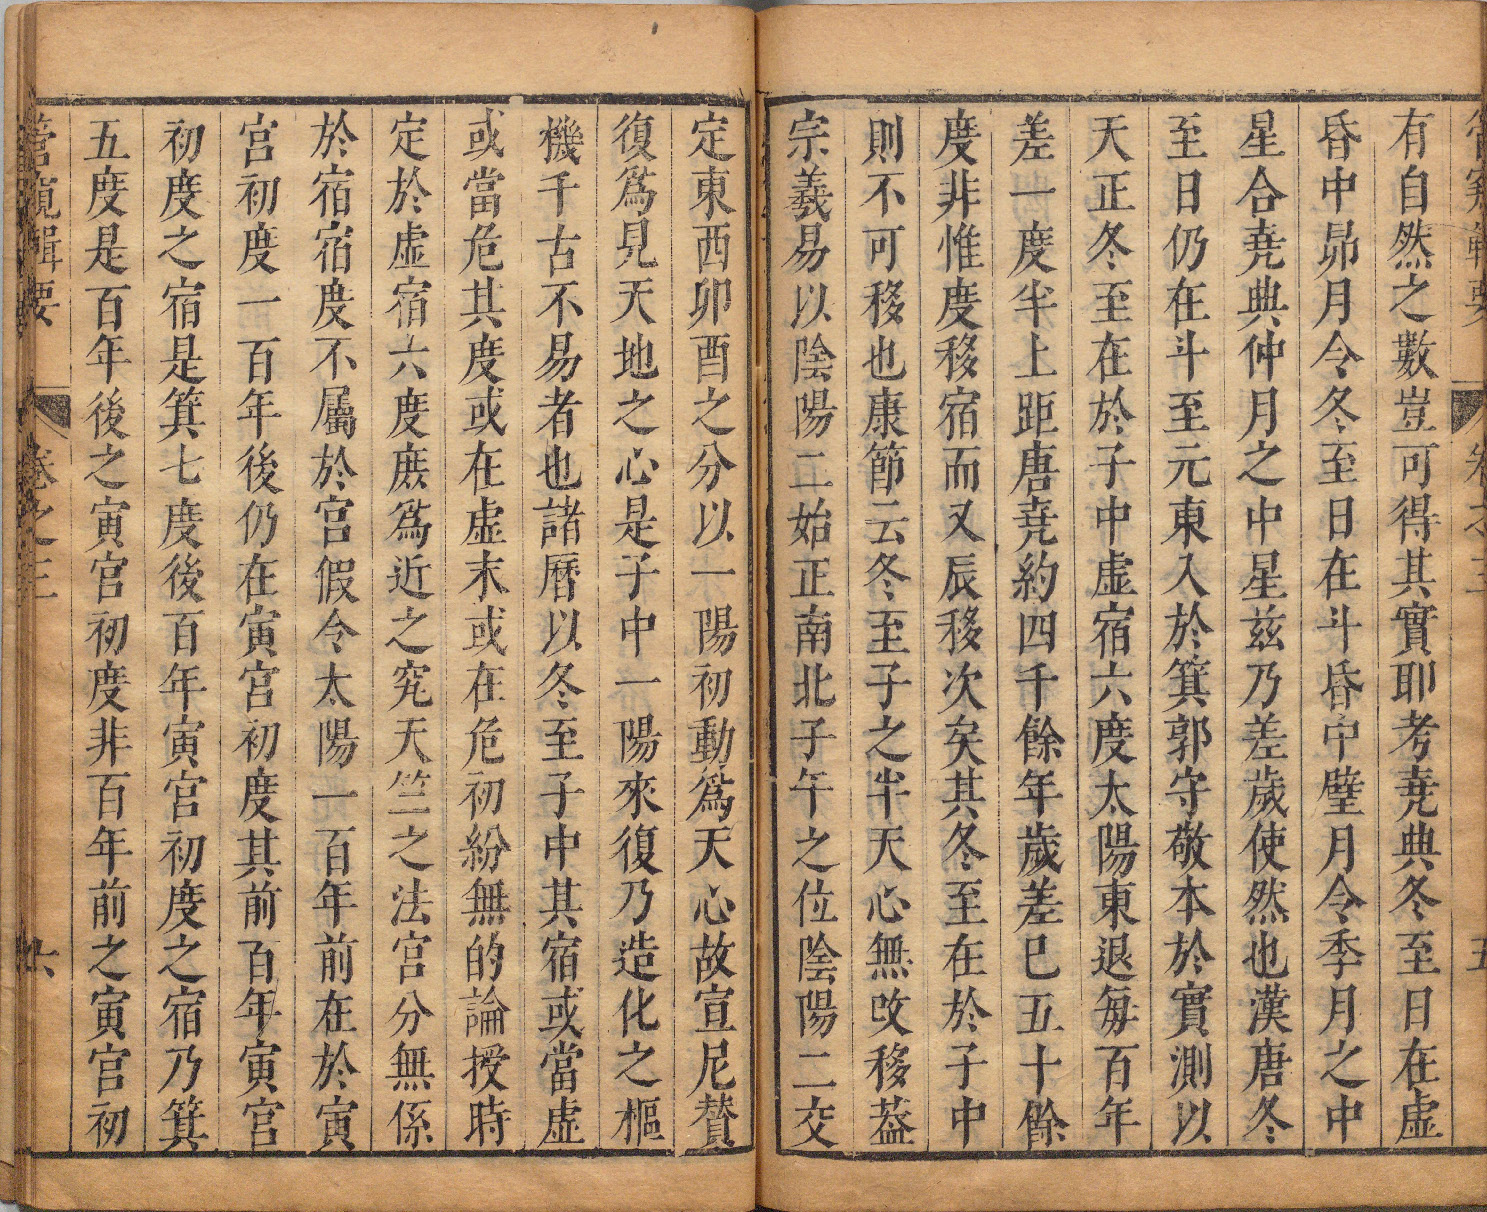 有自然之數豈可得其實耶考堯典冬至日在虛
昏中昴月令冬至日在斗昏中璧月令季月之中
星合堯典仲月之中星玆乃差歲使然也漢唐冬
至日仍在斗至元東入於箕郭守敬本於實測以
天正冬至在於子中虛宿六度太陽東退每百年
差一度半上距唐堯約四千餘年歲差巳五十餘
度非惟度移宿而又辰移次矣其冬至在於子中
則不可移也康節云冬至子之半天心無改移葢
宗羲易以陰陽二始正南北子午之位陰陽二交
定東西卯酉之分以一陽初動爲天心故宣尼賛
復爲見天地之心是子中一陽來復乃造化之樞
機千古不易者也諸曆以冬至子中其宿或當虛
或當危其度或在虛末或在危初紛無的論授時
定於虛宿六度庶爲近之究天竺之法宮分無係
於宿宿度不屬於宮假令太陽一百年前在於寅
宮初度一百年後仍在寅宮初度其前百年寅宮
初度之宿是箕七度後百年寅宮初度之宿乃箕
五度是百年後之寅宮初度非百年前之寅宮初
管窺輯要 卷之三 六